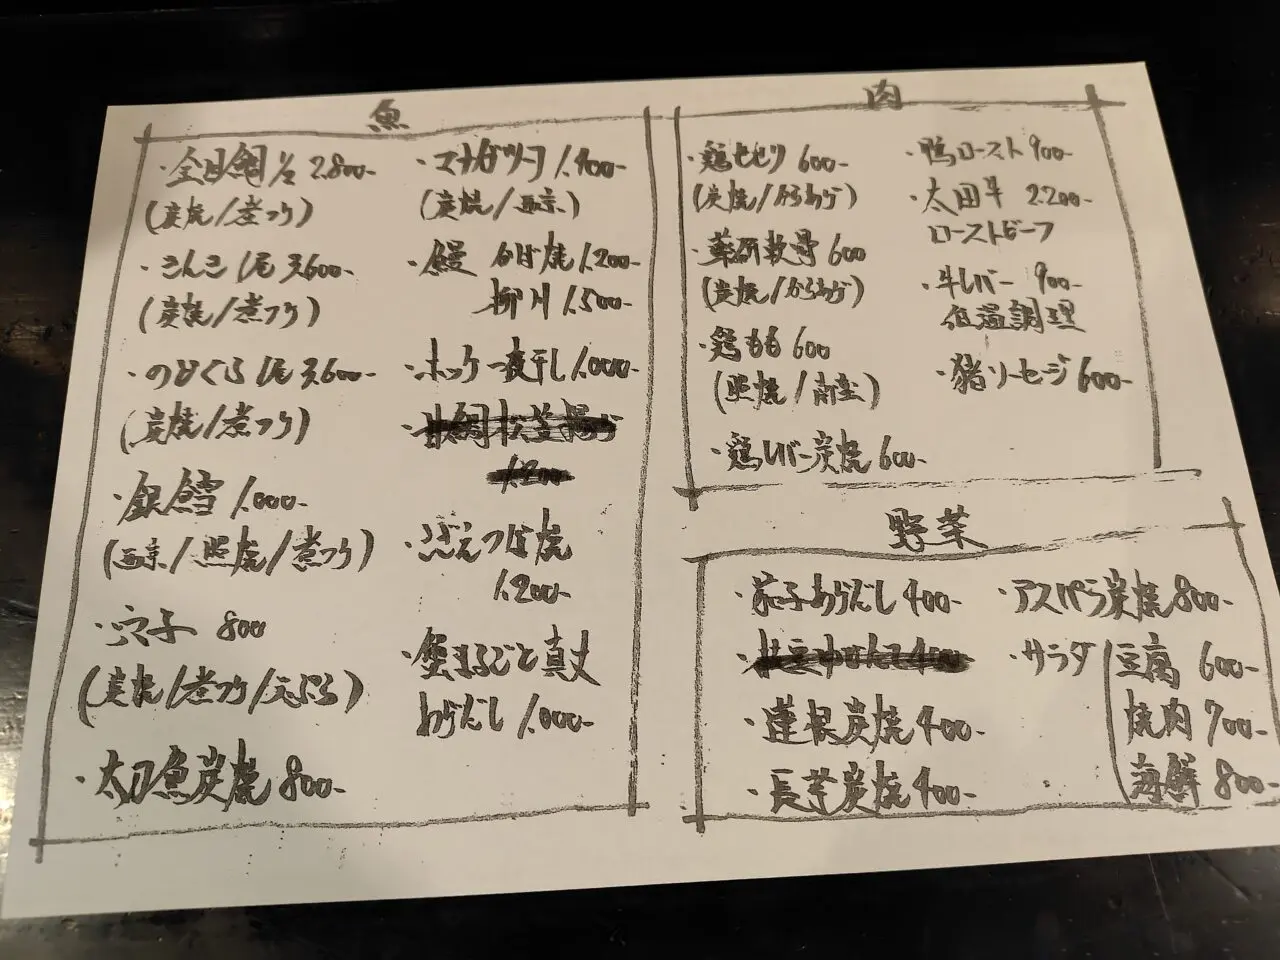 魚
・金目鯛 1/2 2.800-
(炭焼/煮つけ)
・きんき 1尾 3.600-
(炭焼/煮つけ)
・のどくろ 1尾 3.600-
(炭焼/煮つけ)
・銀鱈 1.000-
(西京/照焼/煮つけ)
・穴子 800
(炭焼/煮つけ/天ぷら)
・太刀魚炭焼 800-
・マナガツヲ 1.400-
(炭焼/西京)
・鰻 かば焼 1.200-
柳川 1.500-
・ホッケ一夜干し 1.000-
1.200
・さざえつぼ焼
1.200-
・蟹まるごと真丈
おろだし 1.000-
肉
・鶏せせり 600-
(炭焼/からあげ)
・薬研軟骨 600
(炭焼/からあげ)
・鶏もも 600
(照焼/南蛮)
・鶏レバー炭焼 600-
・鴨ロースト 900-
・太田牛 2.200-
ローストビーフ
・牛レバー 900-
低温調理
・猪ソーセージ 600-
野菜
・茄子おろだし 400-
・蓮根炭焼 400-
・長芋炭焼 400-
・アスパラ炭焼 800-
・サラダ 豆腐 600-
焼肉 700-
海鮮 800-